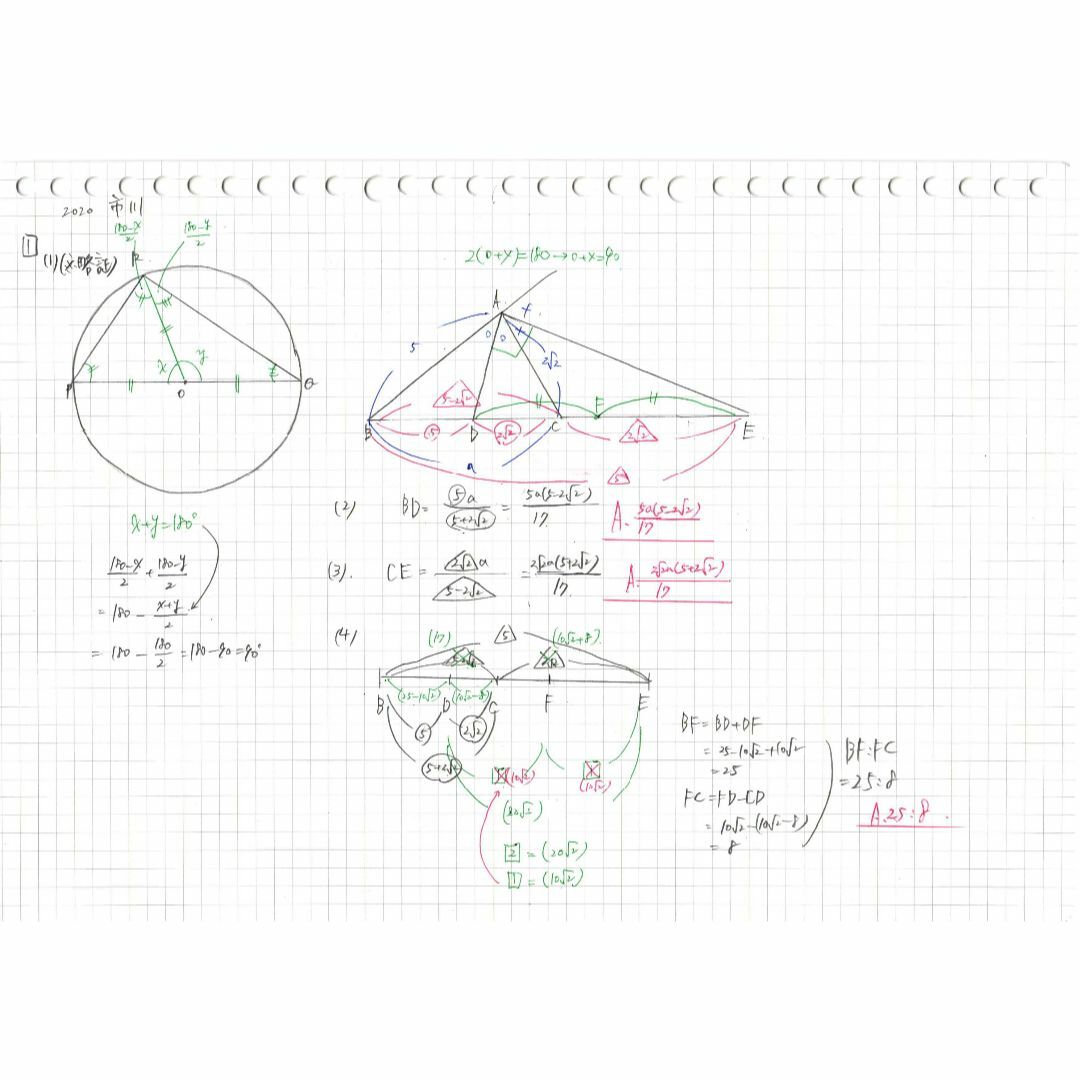 2020 市川
1
(1)(※略証)
180-x/2
180-y/2
R
x
y
P
O
Q
x+y=180°
180-x/2 + 180-y/2
= 180 - x+y/2
= 180 - 180/2 = 180-90=90°
2(○+×)=180→○+×=90
A
5
2√2
5-2√2
F
B
⑤
D
2√2
C
2√2
E
a
5
(2) BD= ⑤a/5+2√2 = 5a(5-2√2)/17 A. 5a(5-2√2)/17
(3). CE= 2√2a/5-2√2 = 2√2a(5+2√2)/17 A. 2√2a(5+2√2)/17
(4)
(17)
5
(10√2+8)
(25-10√2)
(10√2-8)
B D C F E
⑤
2√2
5+2√2
(10√2)
(10√2)
(20√2)
2 = (20√2)
1 = (10√2)
BF=BD+DF
= 25-10√2+10√2
= 25
FC=FD-CD
= 10√2-(10√2-8)
= 8
BF:FC
=25:8
A.25:8.